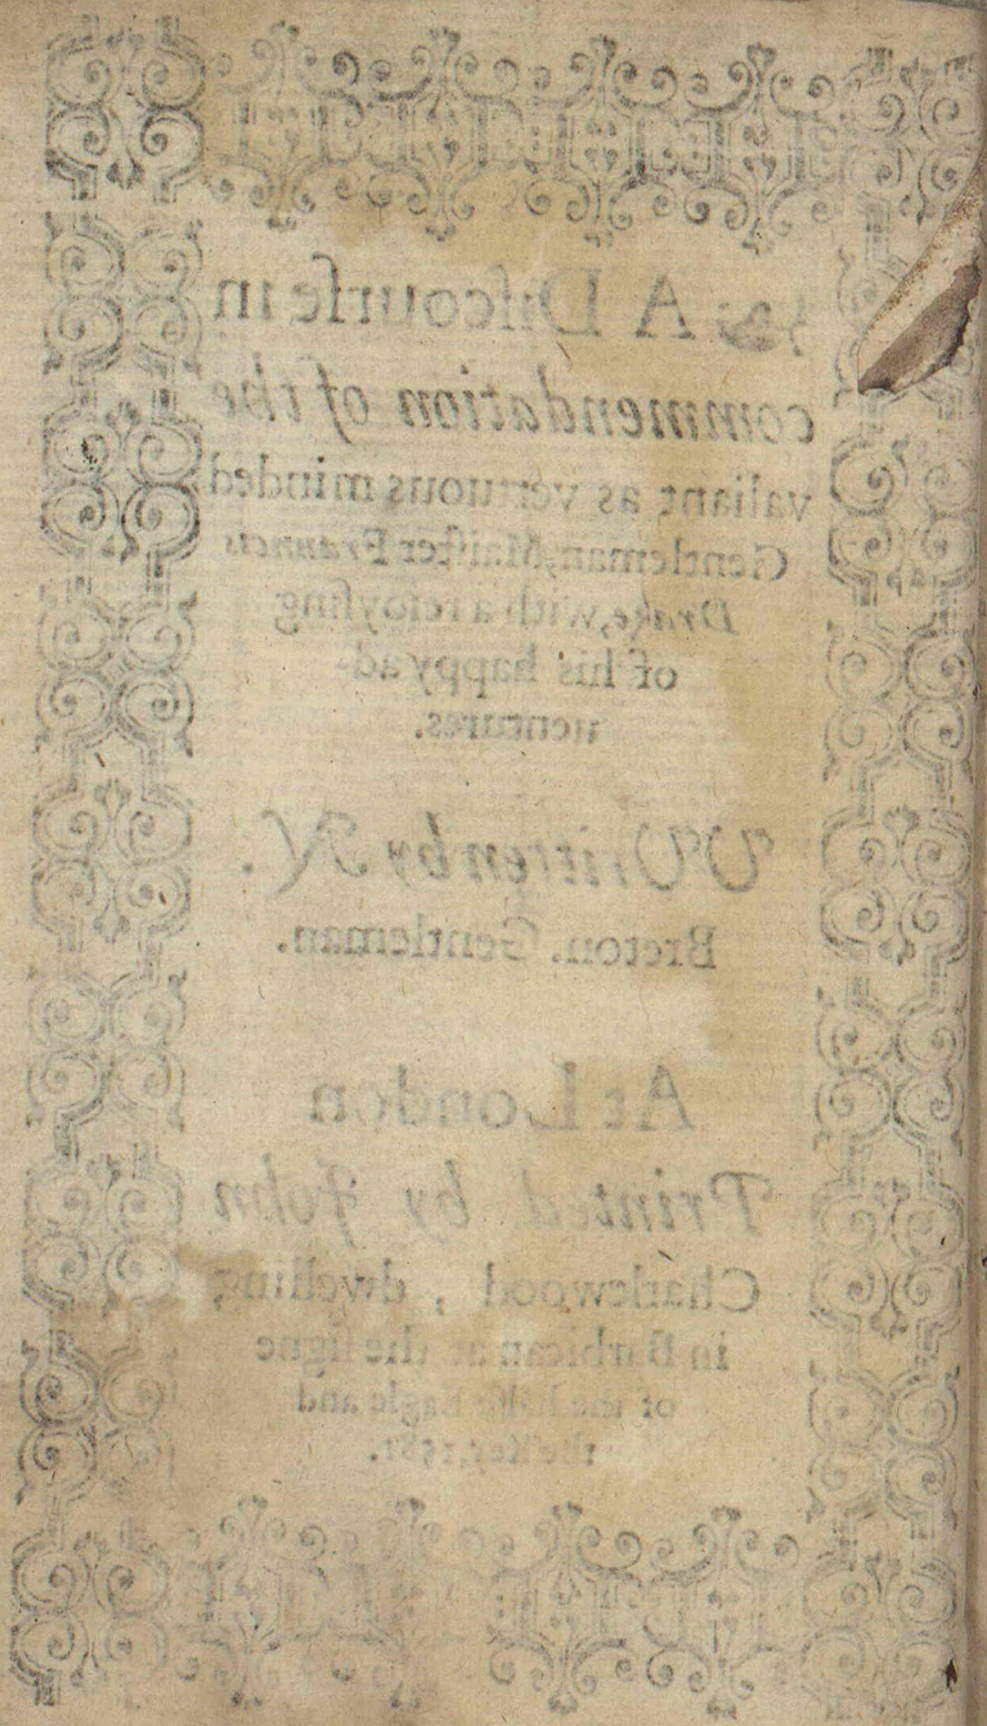 ❧ A Diſcourſe in
commendation of the
valiant as vertuous minded
Gentleman, Maiſter Frauncis
Drake, with a reioyſing
of his happy ad-
uentures.
VVritten by N.
Breton. Gentleman.
At London
Printed by John
Charlewood, dwelling
in Barbican at the ſigne
of the halfe Eagle and
the Key, 1581.